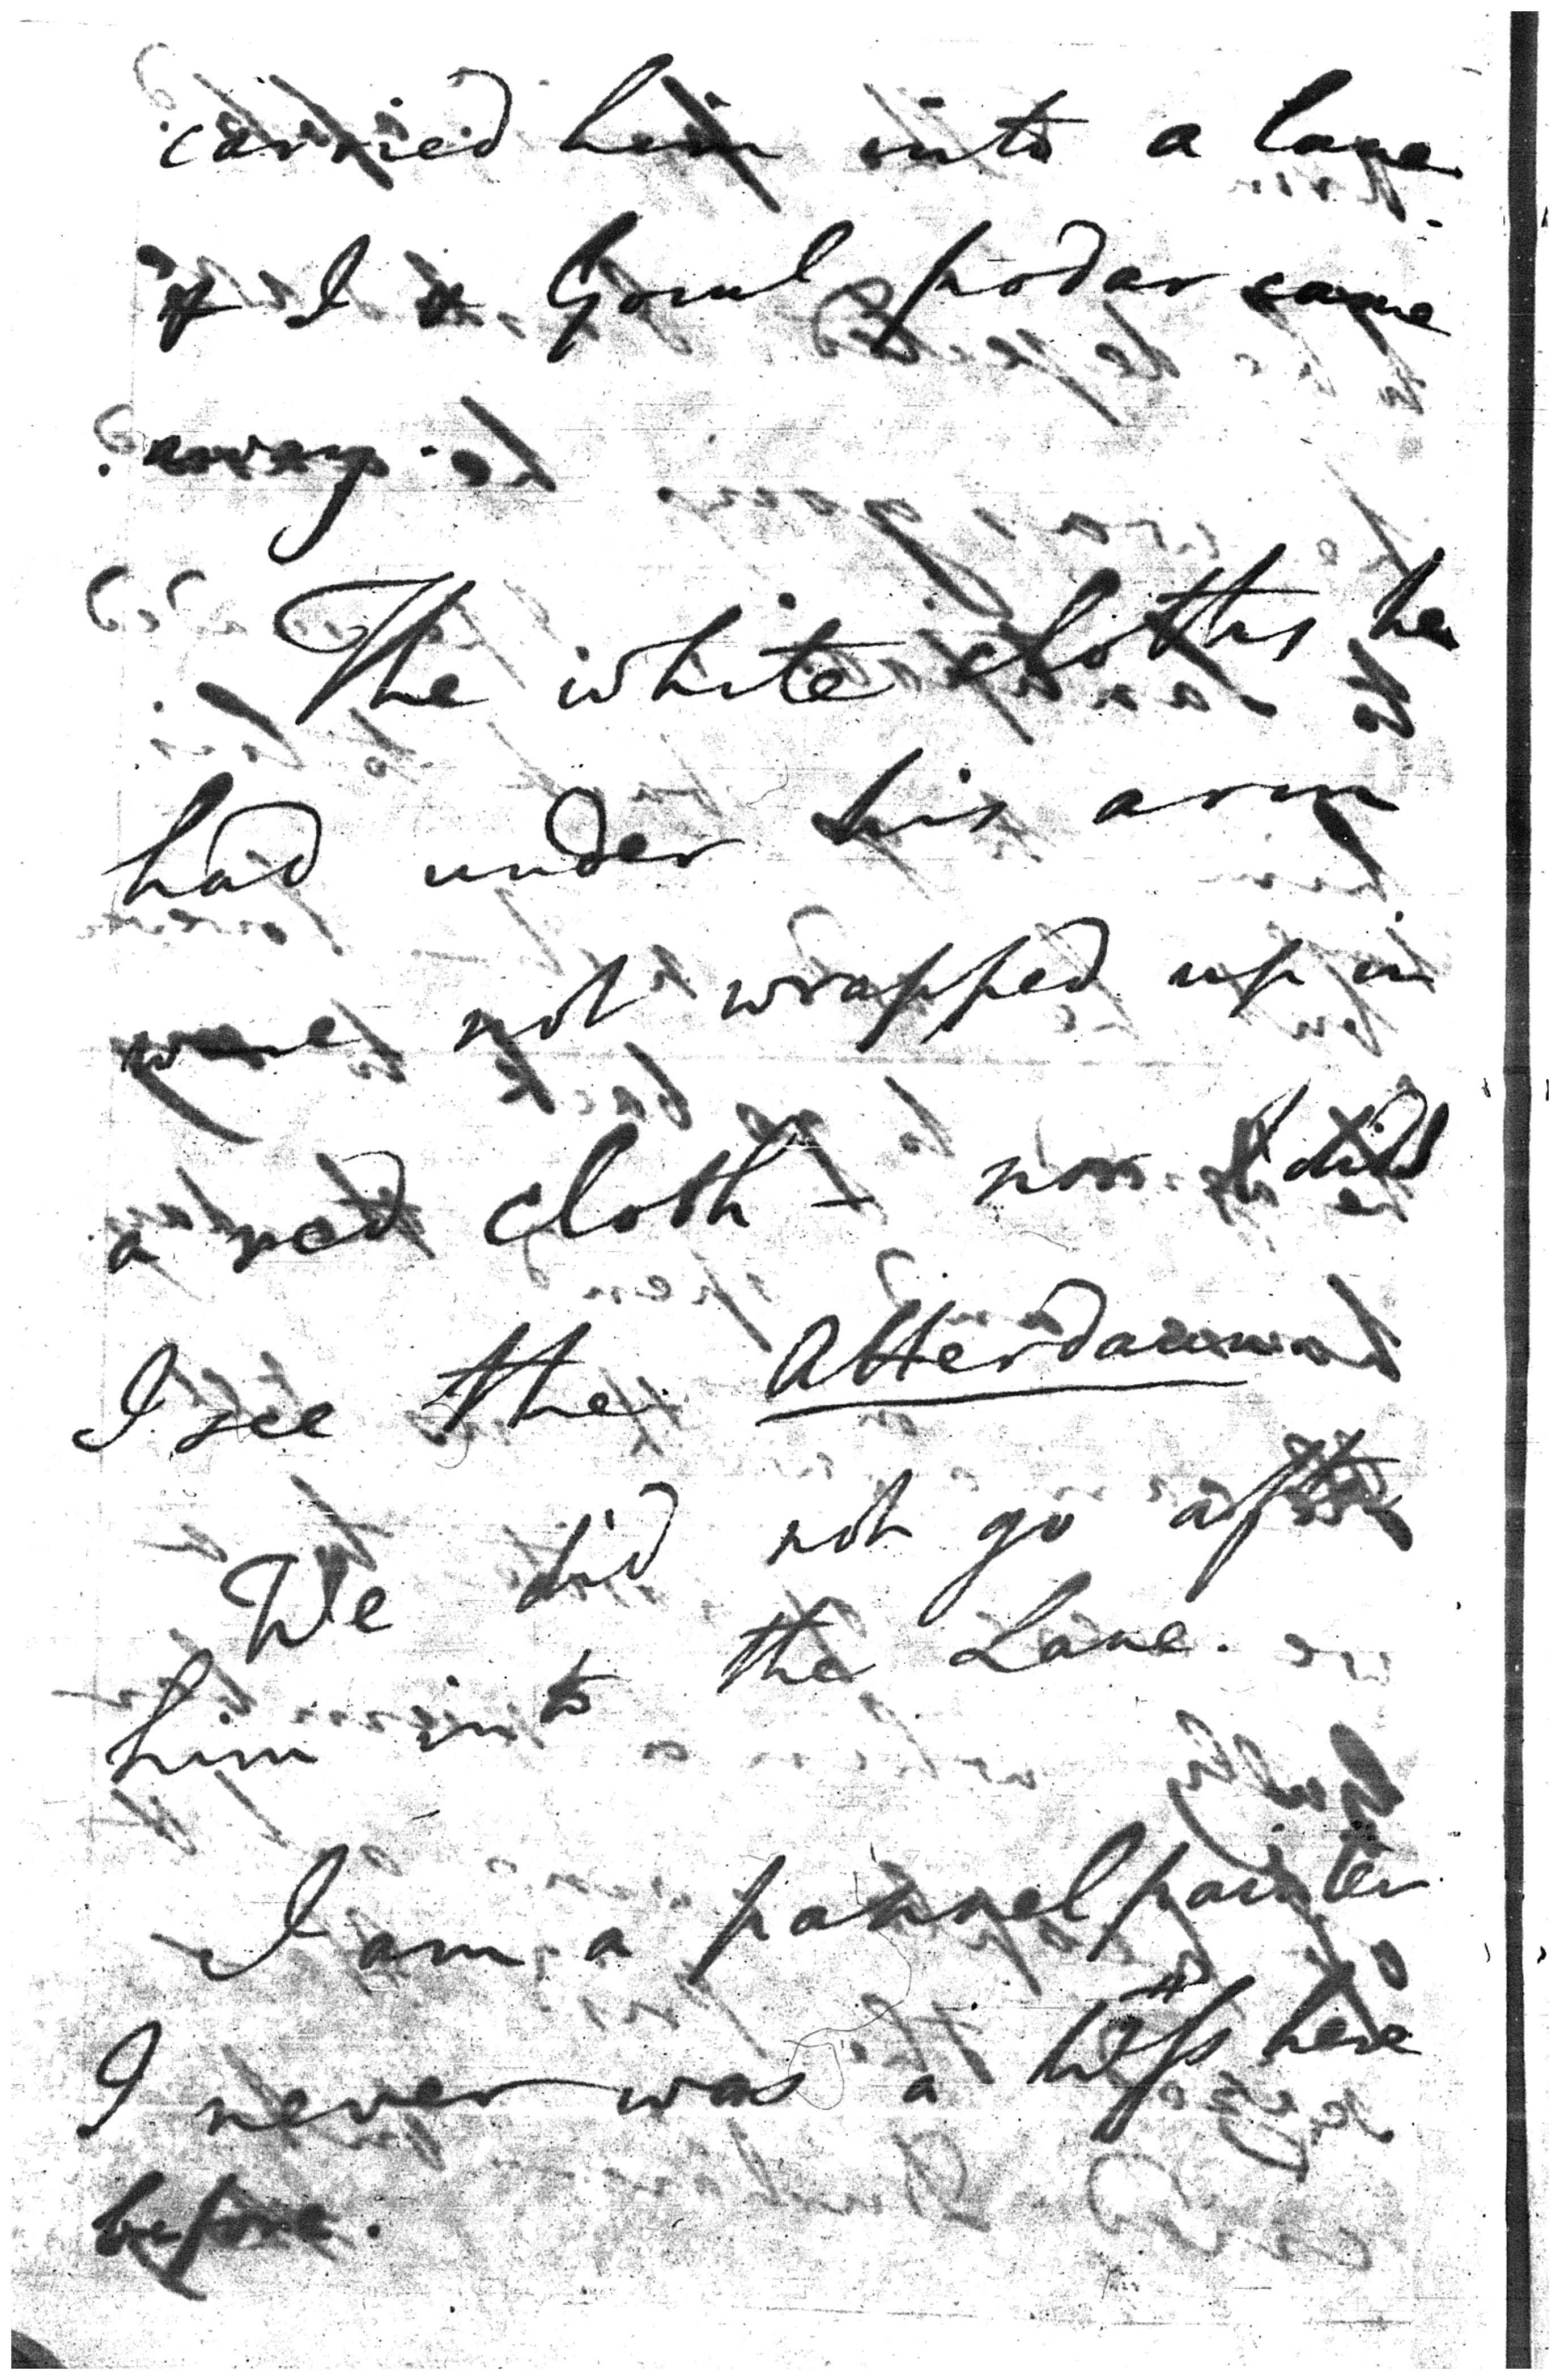 carried him into a lane
& I & Gocul podar came
away.
The white cloths he
had under his arm
were not wrapped up in
a red cloth – nor did
I see the Atterdaun
We did not go after
him into the Lane.
I am a pannel painter
I never was a Wss here
before.